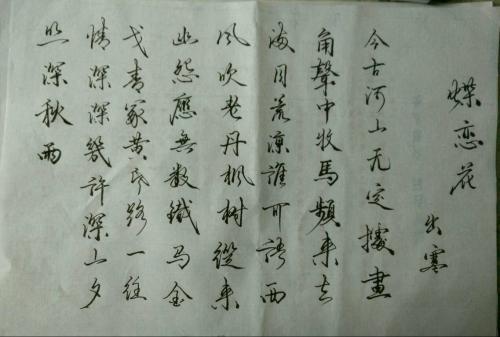 蝶恋花
出塞
今古河山无定據畫
角聲中牧馬頻来去
满目荒凉誰可語西
风吹老丹枫树從来
幽怨應無数鐵马金
戈青冢黄昏路一往
情深深幾許深山夕
照深秋雨